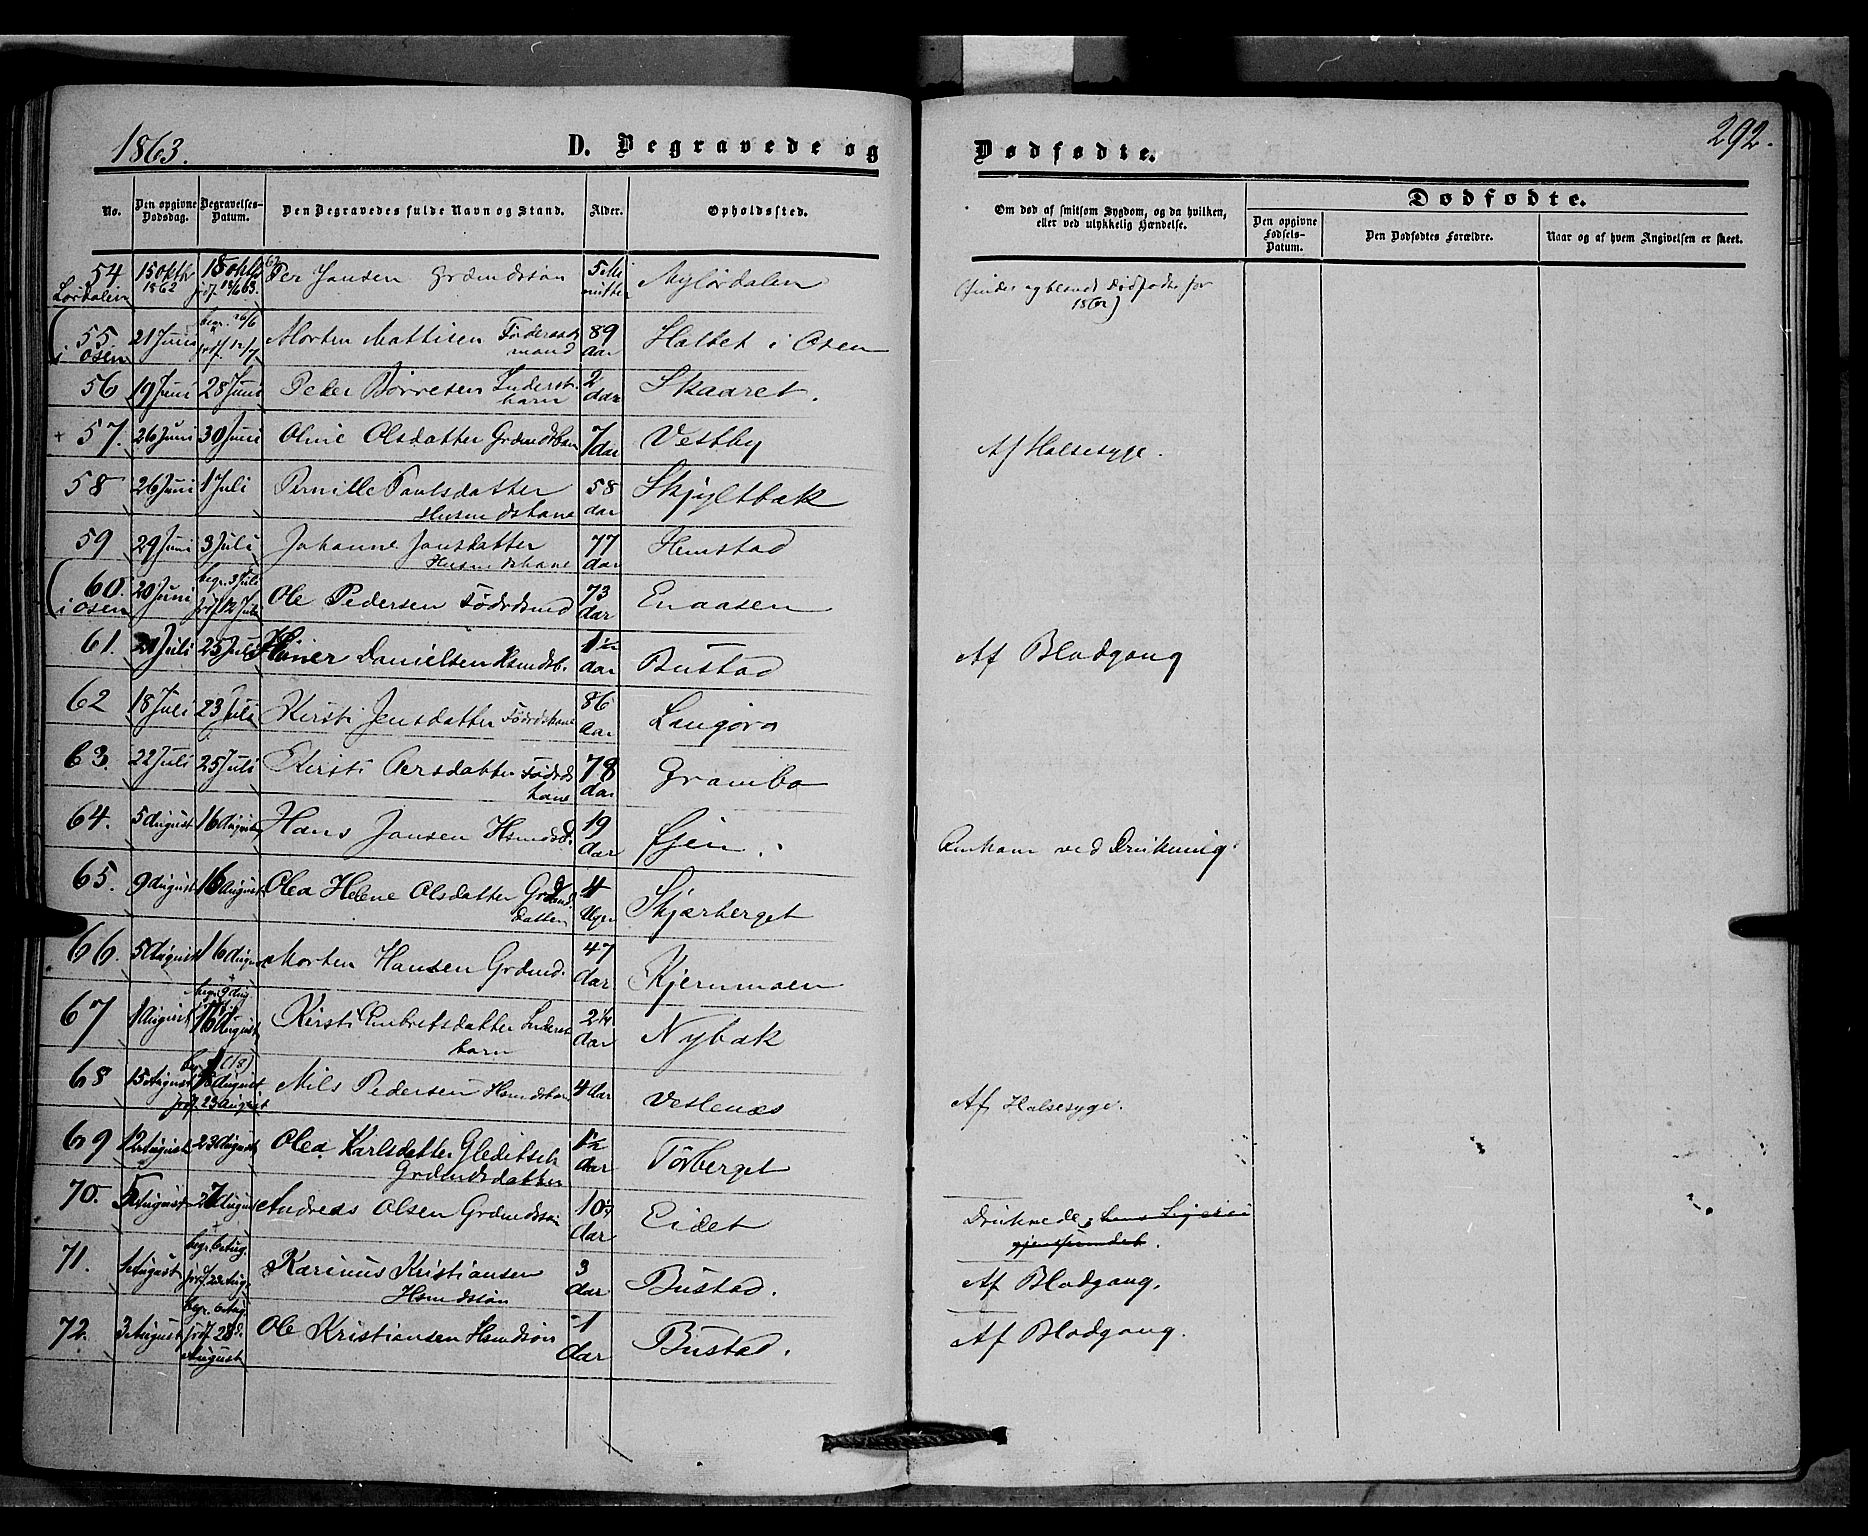 1863.
D. Begravede og
Dødfødte.
292.
No.
Den opgivne Dødsdag.
Begravelses-Datum.
Den Begravedes fulde Navn og Stand.
Alder.
Opholdssted.
Om død af smitsom Sygdom, og da hvilken, eller ved ulykkelig Hændelse.
Dødfødte.
Den opgivne Fødsels-Datum.
Den Dødfødtes Forældre.
Naar og af hvem Angivelsen er skeet.
54 15 oktbr 1862 Per Jansen Grdmdssøn 5 Mi nutter Nylørdalen
Lørdalen
55 21 Juni begr. 26/6 Morten Mattisen Føderaads mand 89 aar Haltet i Osen
i Osen
56 19 Juni 28 Juni Peder Børresen Inderst barn 2 aar Skaaret.
+ 57. 26 Juni 30 Juni Oline Olsdatter Grdmdsbarn 7 aar Vestby Af Halsesyge.
58 26 Juni 1 Juli Pernille Paulsdatter Husmdskone 58 aar Skjyltbæk
59 29 Juni 3 Juli Johanne Jonsdatter Husmdskone 77 aar Hemstad
60. 20 Juni begr. 3 Juli jrdf 12 Juli Ole Pedersen Fødrdsmd 73 aar Enaasen
i Osen
61. 21 Juli 25 Juli Einer Danielsen Hsmdsb. 1 1/2 aar Bustad Af Blodgang
62 18 Juli 23 Juli Kirsti Jensdatter Fødrdskone 86 aar Langøra
63. 22 Juli 25 Juli Kirsti Persdatter Fødrds kone 78 aar Grambo
64. 5 August 16 August Hans Jonsen Hsmdsb. 19 aar Omkom ved Drukning
65. 9 August 16 August Olea Helene Olsdatter Grdmd. datter 4 Uger Skjærberget
66. 5 August 16 August Morten Hansen Grdmd. 47 aar Kjernmoen
67 1 August begr. 9 Aug. 16 August Kirsti Embretsdatter Inderst barn 2 1/4 aar Nybæk
68 15 August 18 August jrdf. 23 August Nils Pedersen Hsmdsbarn 4 aar Veslenæs Af Halsesyge.
69 12 August 23 August Olea Karlsdatter Gleditsch Grdmdsdatter 1 1/2 aar Tørberget
70. 5 August 27 August Andreas Olsen Grdmdssøn 10 aar Eidet Druknede
71. 1 August begr. 6 Aug. jrdf 23 Aug. Karinus Kristiansen Hsmdssøn 3 aar Bustad. Af Blodgang.
72. 3 August begr. 6 Aug jrdf 28d. August Ole Kristiansen Hsmdssøn 1 aar Bustad. Af Blodgang.